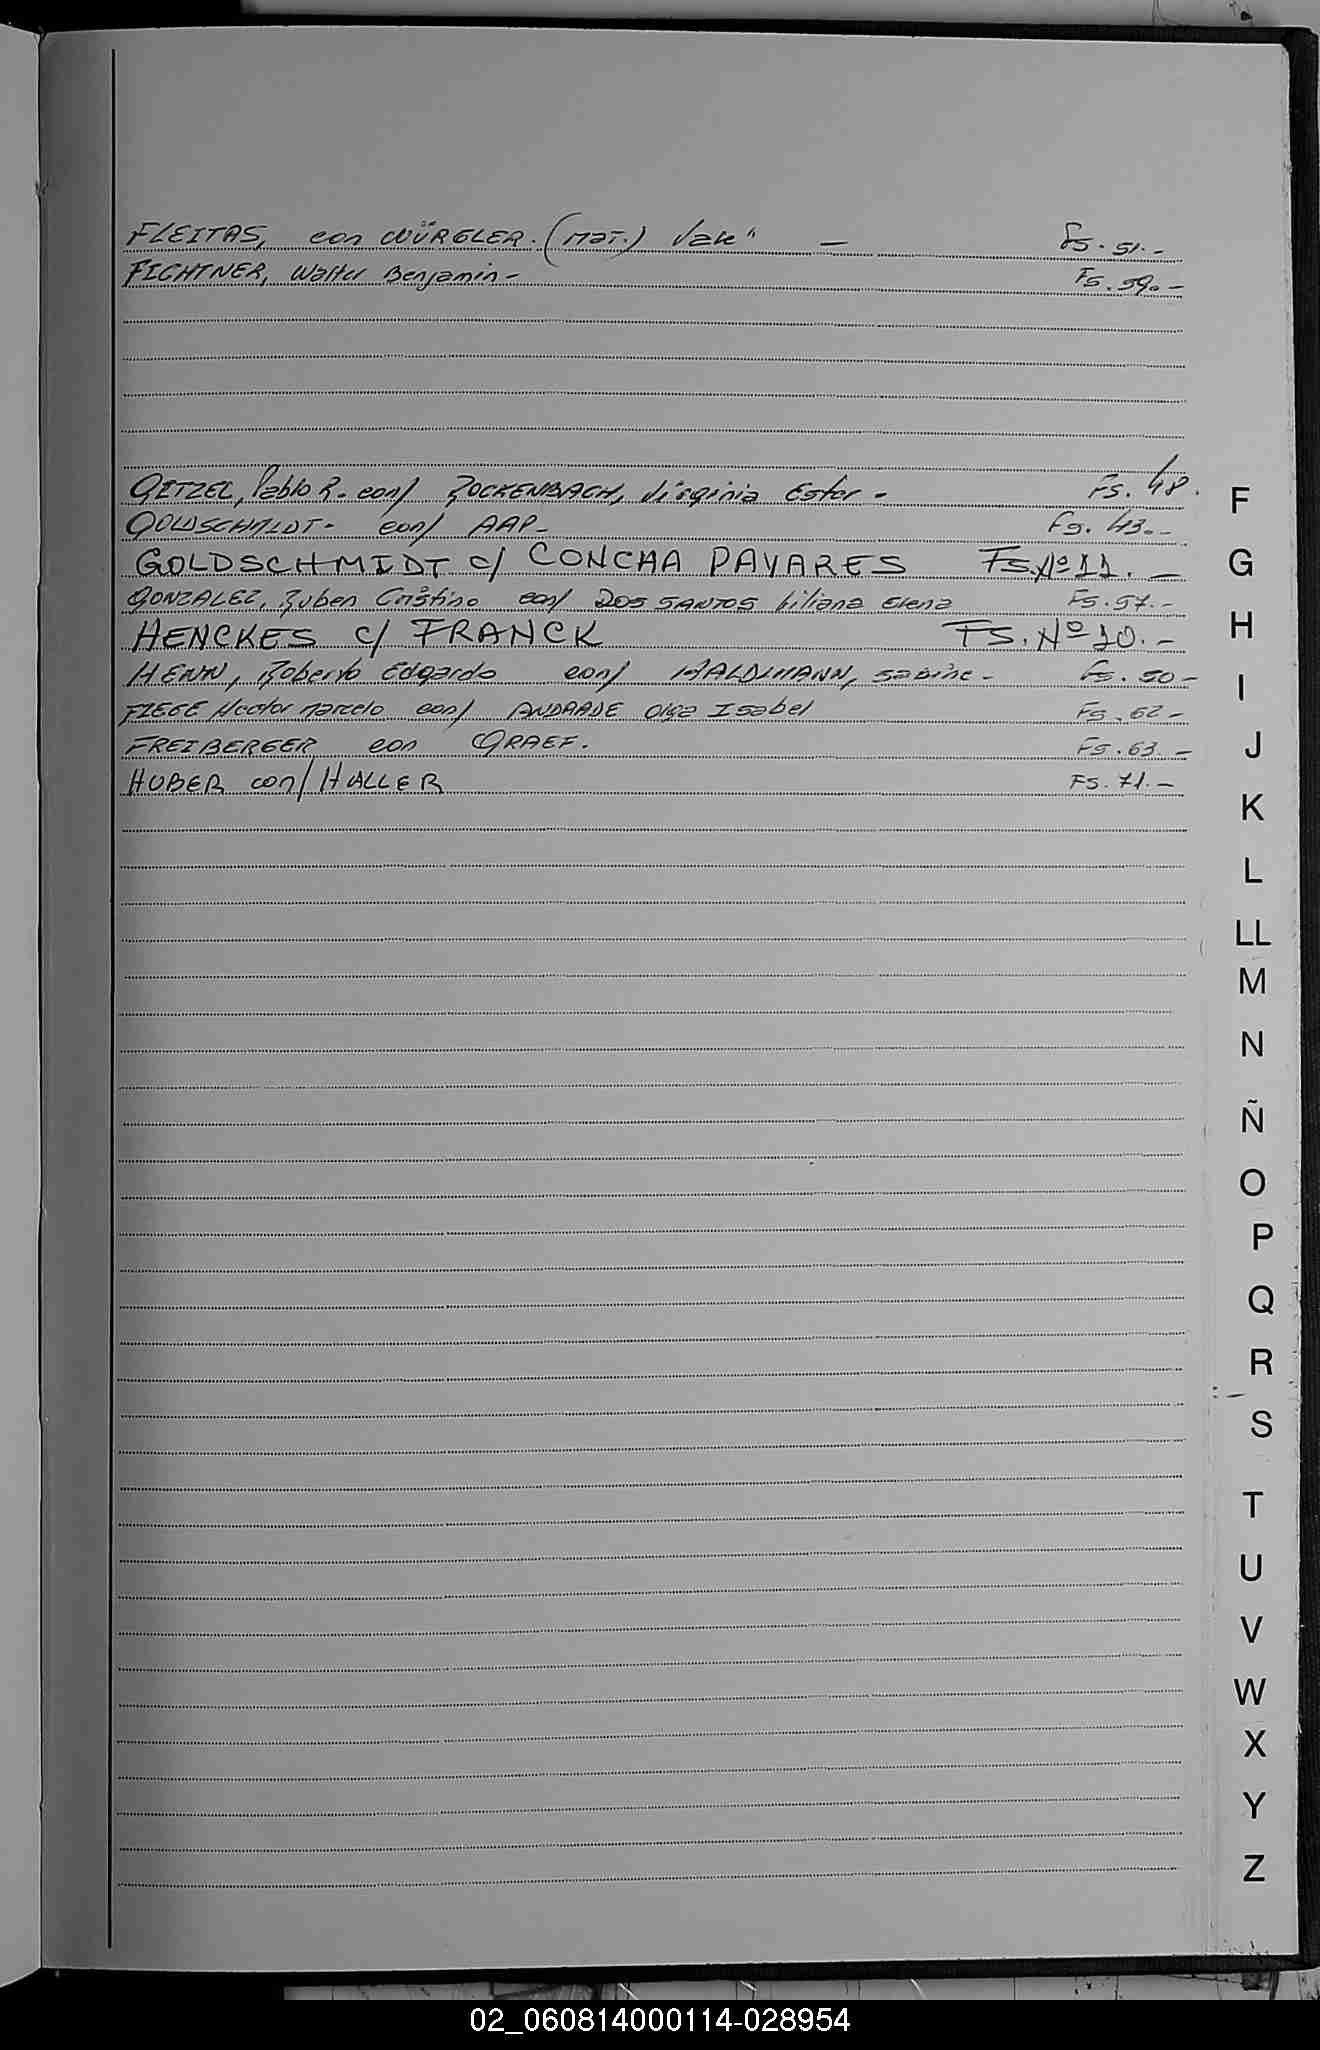 FLEITAS, con WÜRGLER. (MAT.) Vale" — Fs. 51.-
FICHTNER, Walter Benjamin - Fs. 59.-
GETZEL, Pablo R. con/ ROCKENBACH, Virginia Ester - Fs. 48.
GOLDSCHMIDT - con/ AAP - Fs. 43.-
GOLDSCHMIDT c/ CONCHA PAVARES Fs. Nº 11. —
GONZALEZ, Ruben Cristino con/ DOS SANTOS Liliana Elena Fs. 57.-
HENCKES c/ FRANCK FS. Nº 10.-
HENN, Roberto Edgardo con/ WALDMANN, Sabine - Fs. 50 -
FLEGE Hector Marcelo con/ ANDRADE Olga Isabel Fs. 62 -
FREIBERGER con GRAEF. Fs. 63. -
HUBER con/ HULLER Fs. 71. -
F
G
H
I
J
K
L
LL
M
N
Ñ
O
P
Q
R
S
T
U
V
W
X
Y
Z
02_060814000114-028954